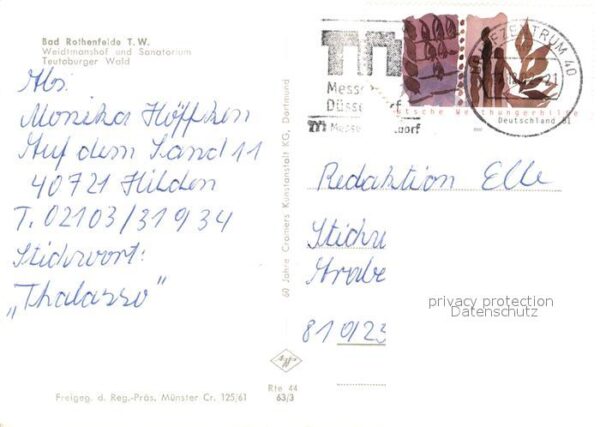 Bad Rothenfelde T. W.
Weidtmanshof und Sanatorium
Teutoburger Wald
Abs.
Monika Höffken
Auf dem Sand 11
40721 Hilden
T. 02103/31934
Stichwort:
„Thalasso"
Freigeg. d. Reg.-Präs. Münster Cr. 125/61
60 Jahre Cramers Kunstanstalt KG, Dortmund
Rte 44
63/3
Messe
Düsseldorf
Messe
dorf
ZENTRUM 40
Deutsche Welthungerhilfe
Deutschland
Redaktion Elle
Stichw
Arabe
privacy protection
Datenschutz